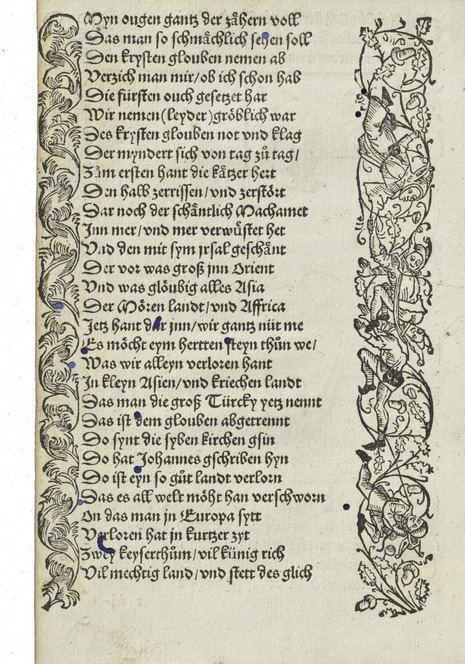 Myn ougen gantz der zåhern voll
Das man so schmåchlich sehen soll
Den krysten glouben nemen ab
Verzich man mir/ ob ich schon hab
Die fürsten ouch gesetzet har
Wir nemen (leyder) gröblich war
Des krysten glouben not vnd klag
Der myndert sich von tag zů tag/
Zům ersten hant die kåtzer hert
Den halb zerrissen/ vnd zerstört
Dar noch der schåntlich Machamet
Jnn mer/ vnd mer verwůstet het
Vnd den mit sym jrsal geschånt
Der vor was groß jnn Orient
Vnd was glöubig alles Asia
Der Mören landt/ vnd Affrica
Jetz hant dar jnn/ wir gantz nüt me
Es möcht eym hertten steyn thůn we/
Was wir alleyn verloren hant
Jn kleyn Asien/ vnd kriechen landt
Das man die groß Türcky yetz nennt
Das ist dem glouben abgetrennt
Do synt die syben kirchen gsin
Do hat Johannes gschriben hyn
Do ist eyn so gůt landt verlorn
Das es all welt möht han verschworn
On das man in Europa sytt
Verloren hat in kurtzer zyt
Zwey keyserthům/ vil künig rich
Vil mechtig land/ vnd stett des glich